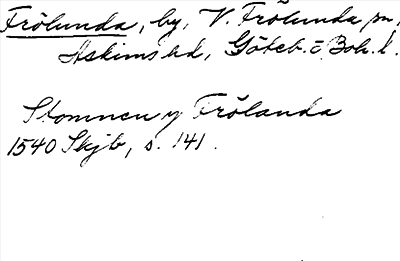 Frölunda, by, V. Frölunda sn,
Askims hd, Göteb. o. Boh. l.
Stomnen y Frölanda
1540 Skjb, s. 141.